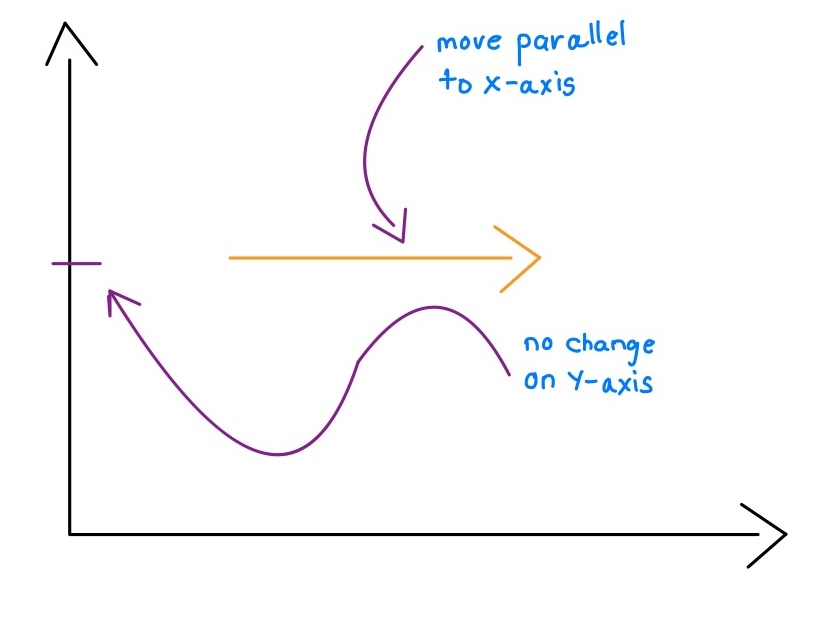 move parallel
to x-axis
no change
on Y-axis